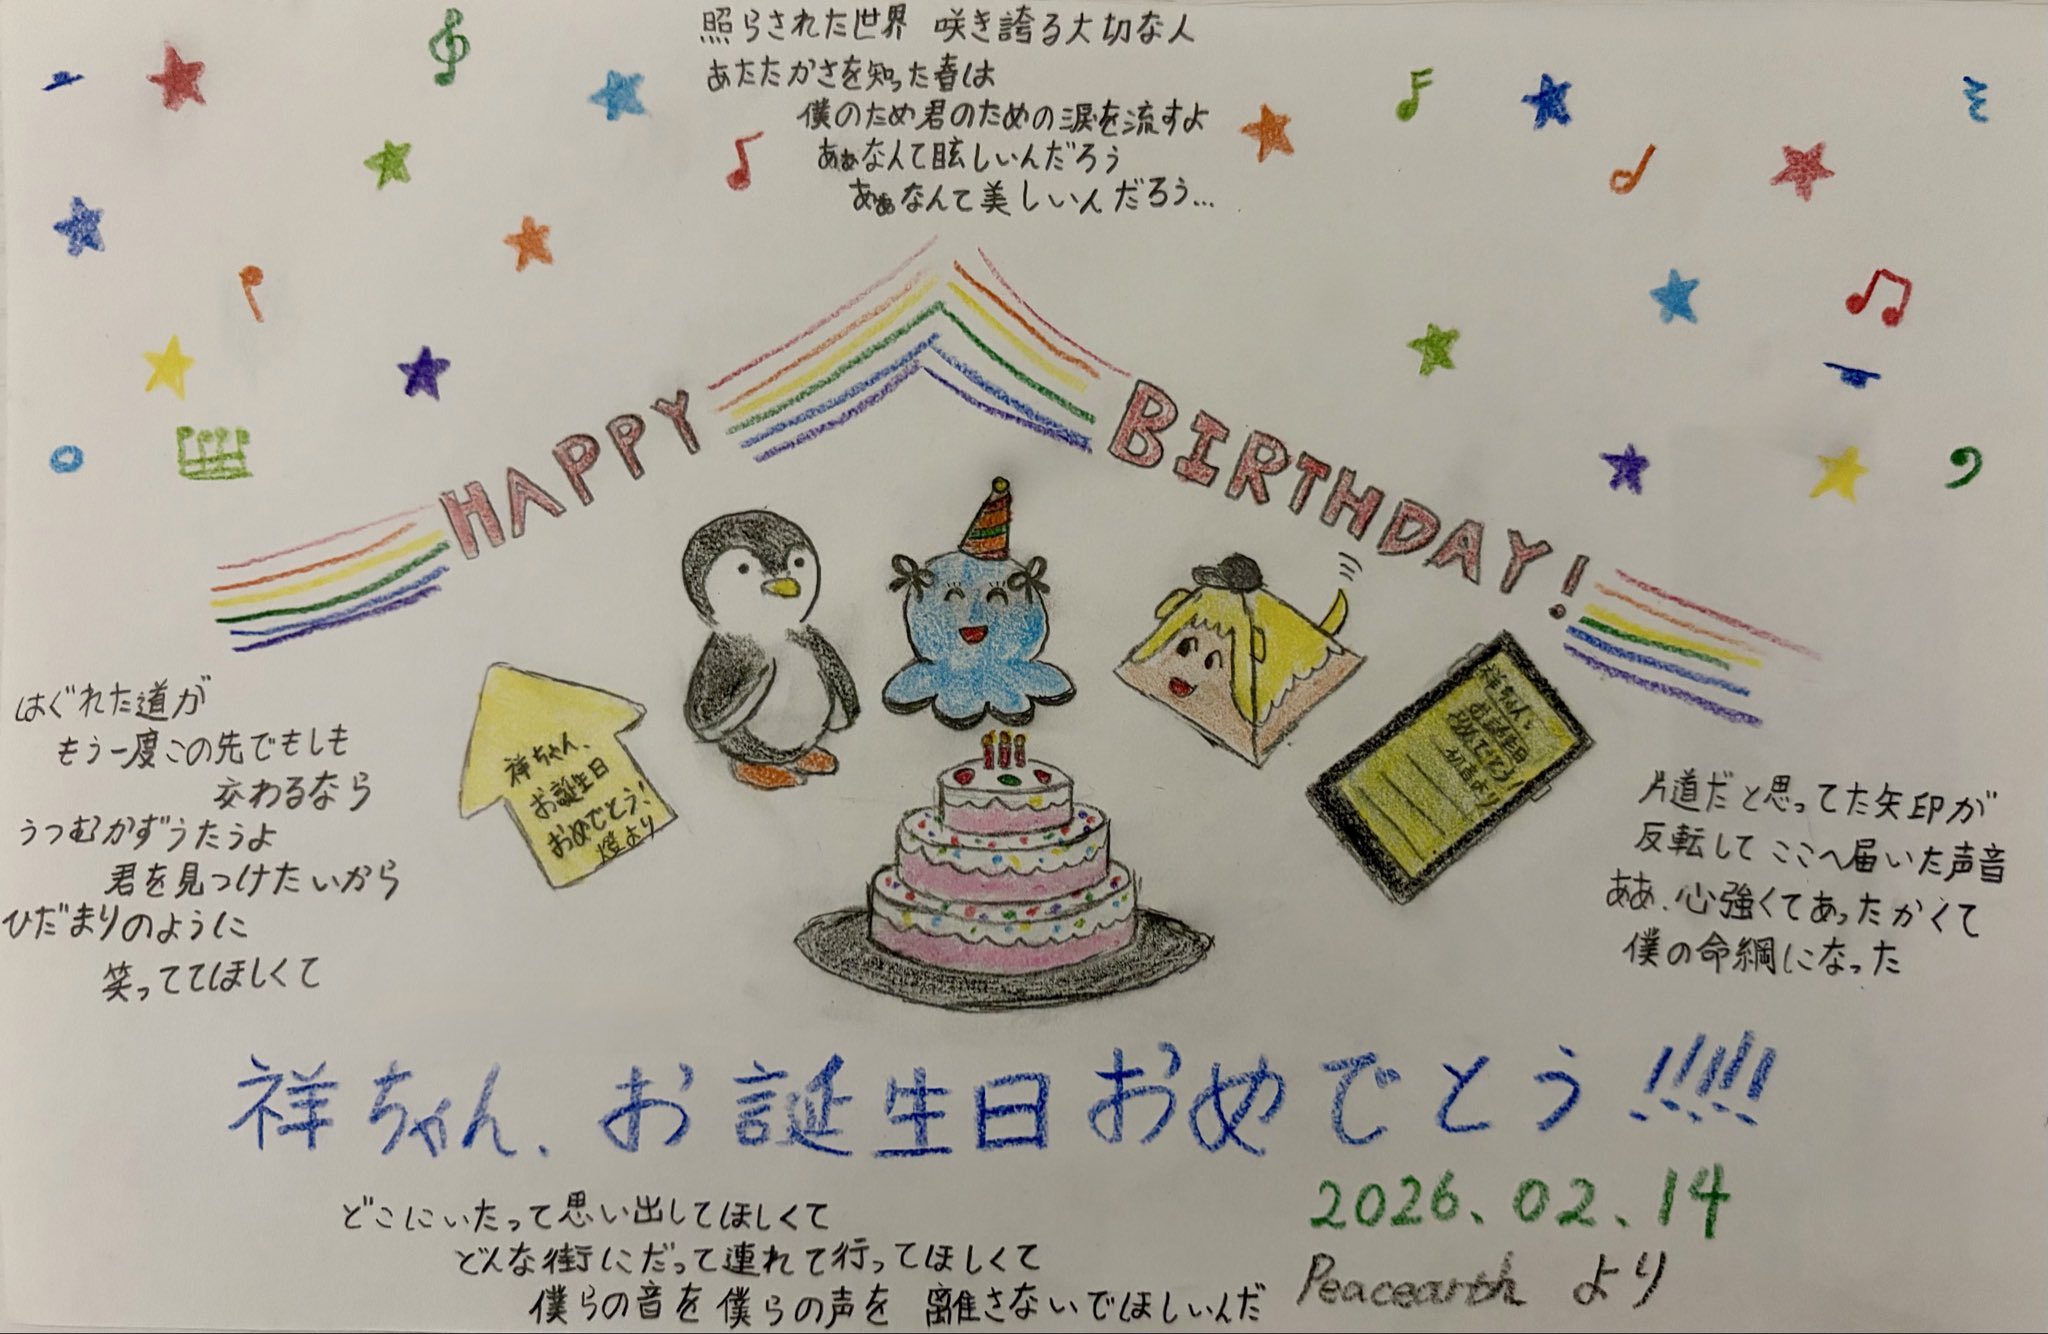 照らされた世界 咲き誇る大切な人
あたたかさを知った春は
僕のため君のための涙を流すよ
あぁなんて眩しいんだろう
あぁなんて美しいんだろう...
HAPPY BIRTHDAY!
はぐれた道が
もう一度この先でもしも
交わるなら
うつむかずうたうよ
君を見つけたいから
ひだまりのように
笑っててほしくて
祥ちゃん、
お誕生日
おめでとう!
燈より
祥ちゃん、
お誕生日
おめでとう!
初音より
片道だと思ってた矢印が
反転してここへ届いた声音
ああ、心強くてあったかくて
僕の命綱になった
祥ちゃん、お誕生日おめでとう!!!!!
2026.02.14
Peacearth より
どこにいたって思い出してほしくて
どんな街にだって連れて行ってほしくて
僕らの音を僕らの声を 離さないでほしいんだ